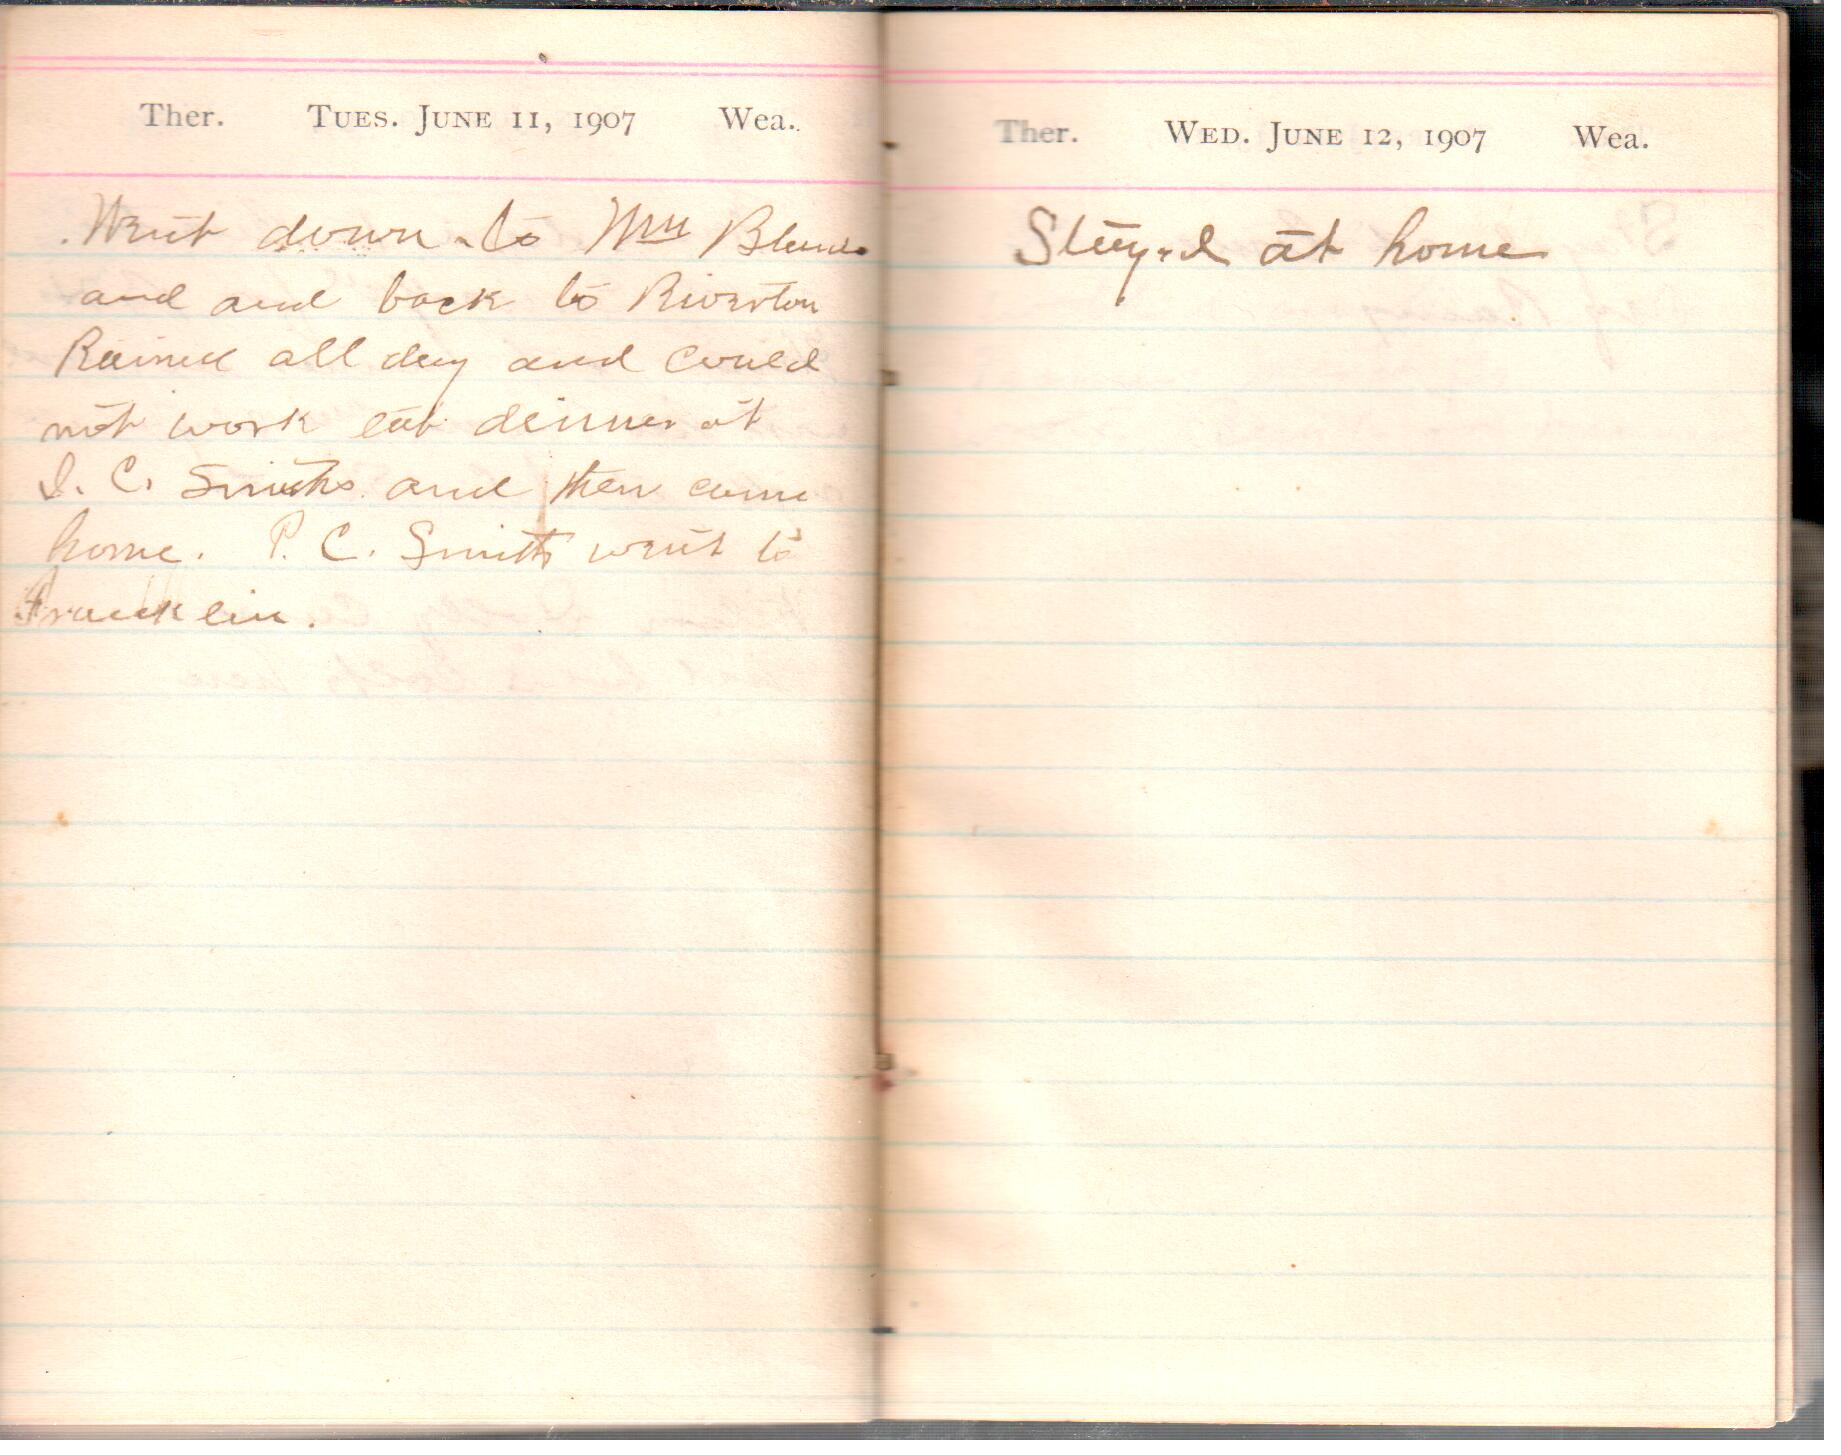 Ther. TUES. JUNE 11, 1907 Wea.
Went down to Mrs
and and back to Riverton
Rained all day and could
not work eat dinner at
I. C. Smiths and then come
home. P. C. Smith went to
Franklin.
Ther. WED. JUNE 12, 1907 Wea.
Stayed at home